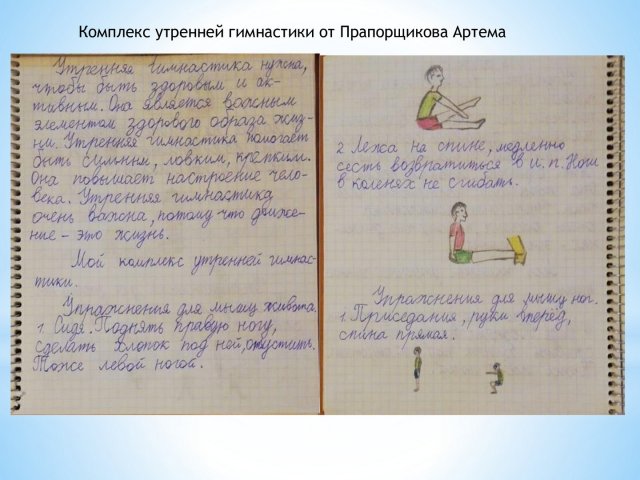 Комплекс утренней гимнастики от Прапорщикова Артема
Утренняя гимнастика нужна,
чтобы быть здоровым и ак-
тивным. Она является важным
элементом здорового образа жиз-
ни. Утренняя гимнастика помогает
быть сильным, ловким, крепким.
Она повышает настроение чело-
века. Утренняя гимнастика
очень важна, потому что движе-
ние - это жизнь.
Мой комплекс утренней гимнас-
тики.
Упражнения для мышц живота.
1 Сидя. Поднять правую ногу,
сделать хлопок под ней, опустить.
Тоже левой ногой.
2 Лежа на спине, медленно
сесть возвратиться в и. п. Ноги
в коленях не сгибать.
Упражнения для мышц ног.
1. Приседания, руки вперёд,
спина прямая.